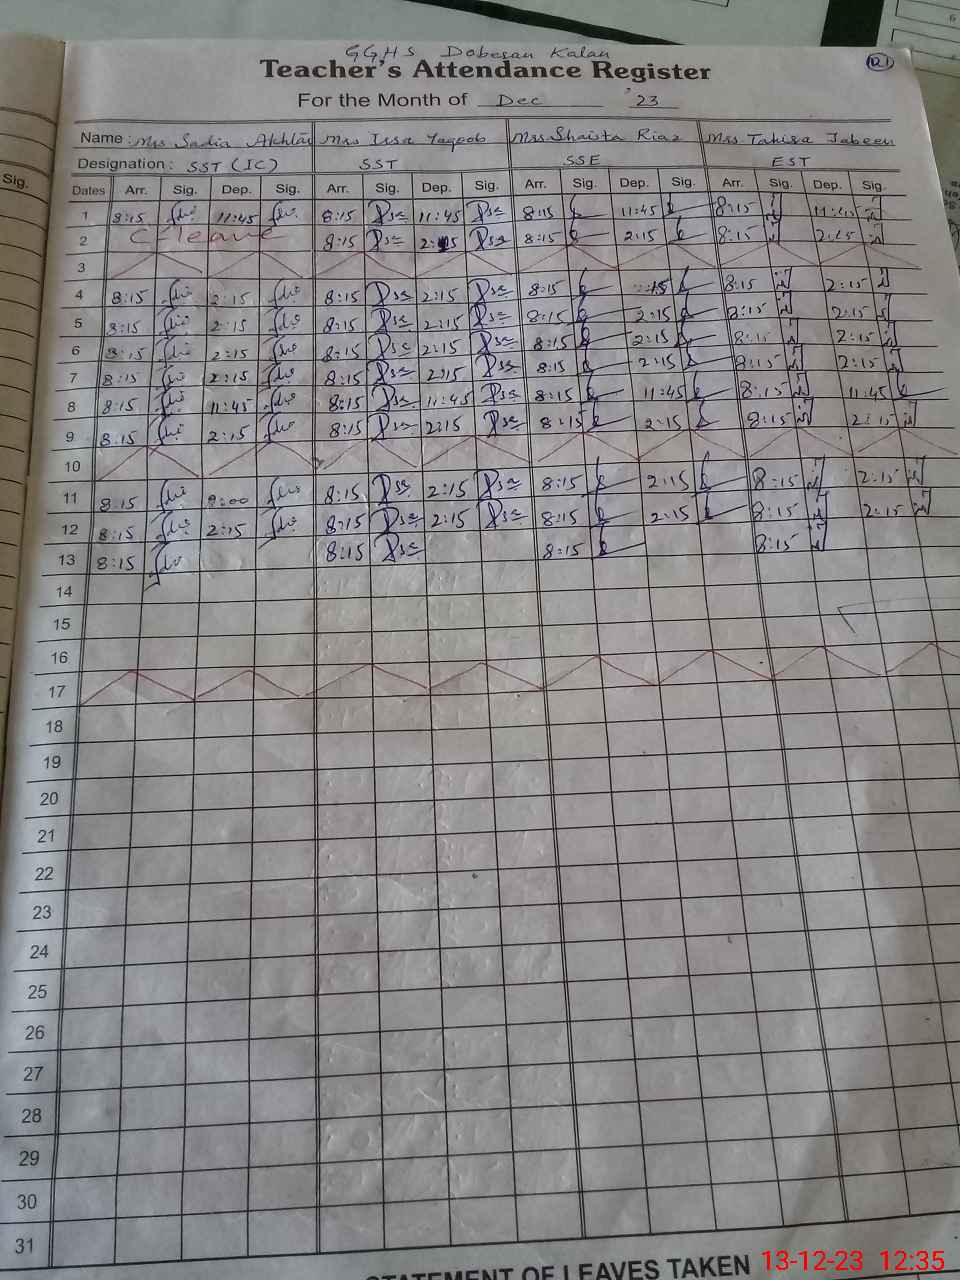 GGHS Dobesan Kalan
Teacher's Attendance Register
121
For the Month of Dec '23
Name: Mrs Sadia Akhtar Mrs Irsa Yaqoob Mrs Shaista Riaz Mrs. Tahira Jabeen
Designation: SST (IC) SST SSE EST
Sig.
Dates Arr. Sig. Dep. Sig. Arr. Sig. Dep. Sig. Arr. Sig. Dep. Sig. Arr. Sig. Dep. Sig.
1 8:15 11:45 8:15 11:45 8:15 11:45 8:15 11:45
2 C-leave 8:15 2:15 8:15 2:15 8:15 2:15
3
4 8:15 2:15 8:15 2:15 8:15 2:15 8:15 2:15
5 8:15 2:15 8:15 2:15 8:15 2:15 8:15 2:15
6 8:15 2:15 8:15 2:15 8:15 2:15 8:15 2:15
7 8:15 2:15 8:15 2:15 8:15 2:15 8:15 2:15
8 8:15 11:45 8:15 11:45 8:15 11:45 8:15 11:45
9 8:15 2:15 8:15 2:15 8:15 2:15 8:15 2:15
10
11 8:15 9:00 8:15 2:15 8:15 2:15 8:15 2:15
12 8:15 2:15 8:15 2:15 8:15 2:15 8:15 2:15
13 8:15 8:15 8:15 8:15
14
15
16
17
18
19
20
21
22
23
24
25
26
27
28
29
30
31
STATEMENT OF LEAVES TAKEN
13-12-23 12:35